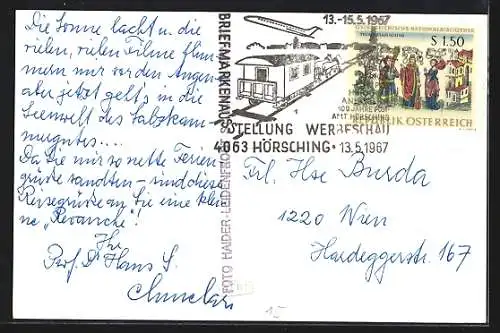 Die Sonne lacht u. die
vielen, vielen Filme flim-
mern mir vor den Augen-
aber jetzt geht's in die
Seenwelt des Salzkam-
mergutes....
Da Sie mir so nette Ferien-
grüße sandten - sind diese
Reisegrüße an Sie eine klei-
ne „Revanche"!
Ihr
Prof. Dr Hans S.
BRIEFMARKENAUS-
STELLUNG WERBESCHAU
13.-15.5.1967
4063 HÖRSCHING · 13.5.1967
100 JAHRE POST-
AMT HÖRSCHING
ÖSTERREICHISCHE NATIONALBIBLIOTHEK
S 1.50
REPUBLIK ÖSTERREICH
FOTO HAIDER-LEIDENFRO
Frl. Ilse Burda
1220 Wien
Hardeggerstr. 167
15